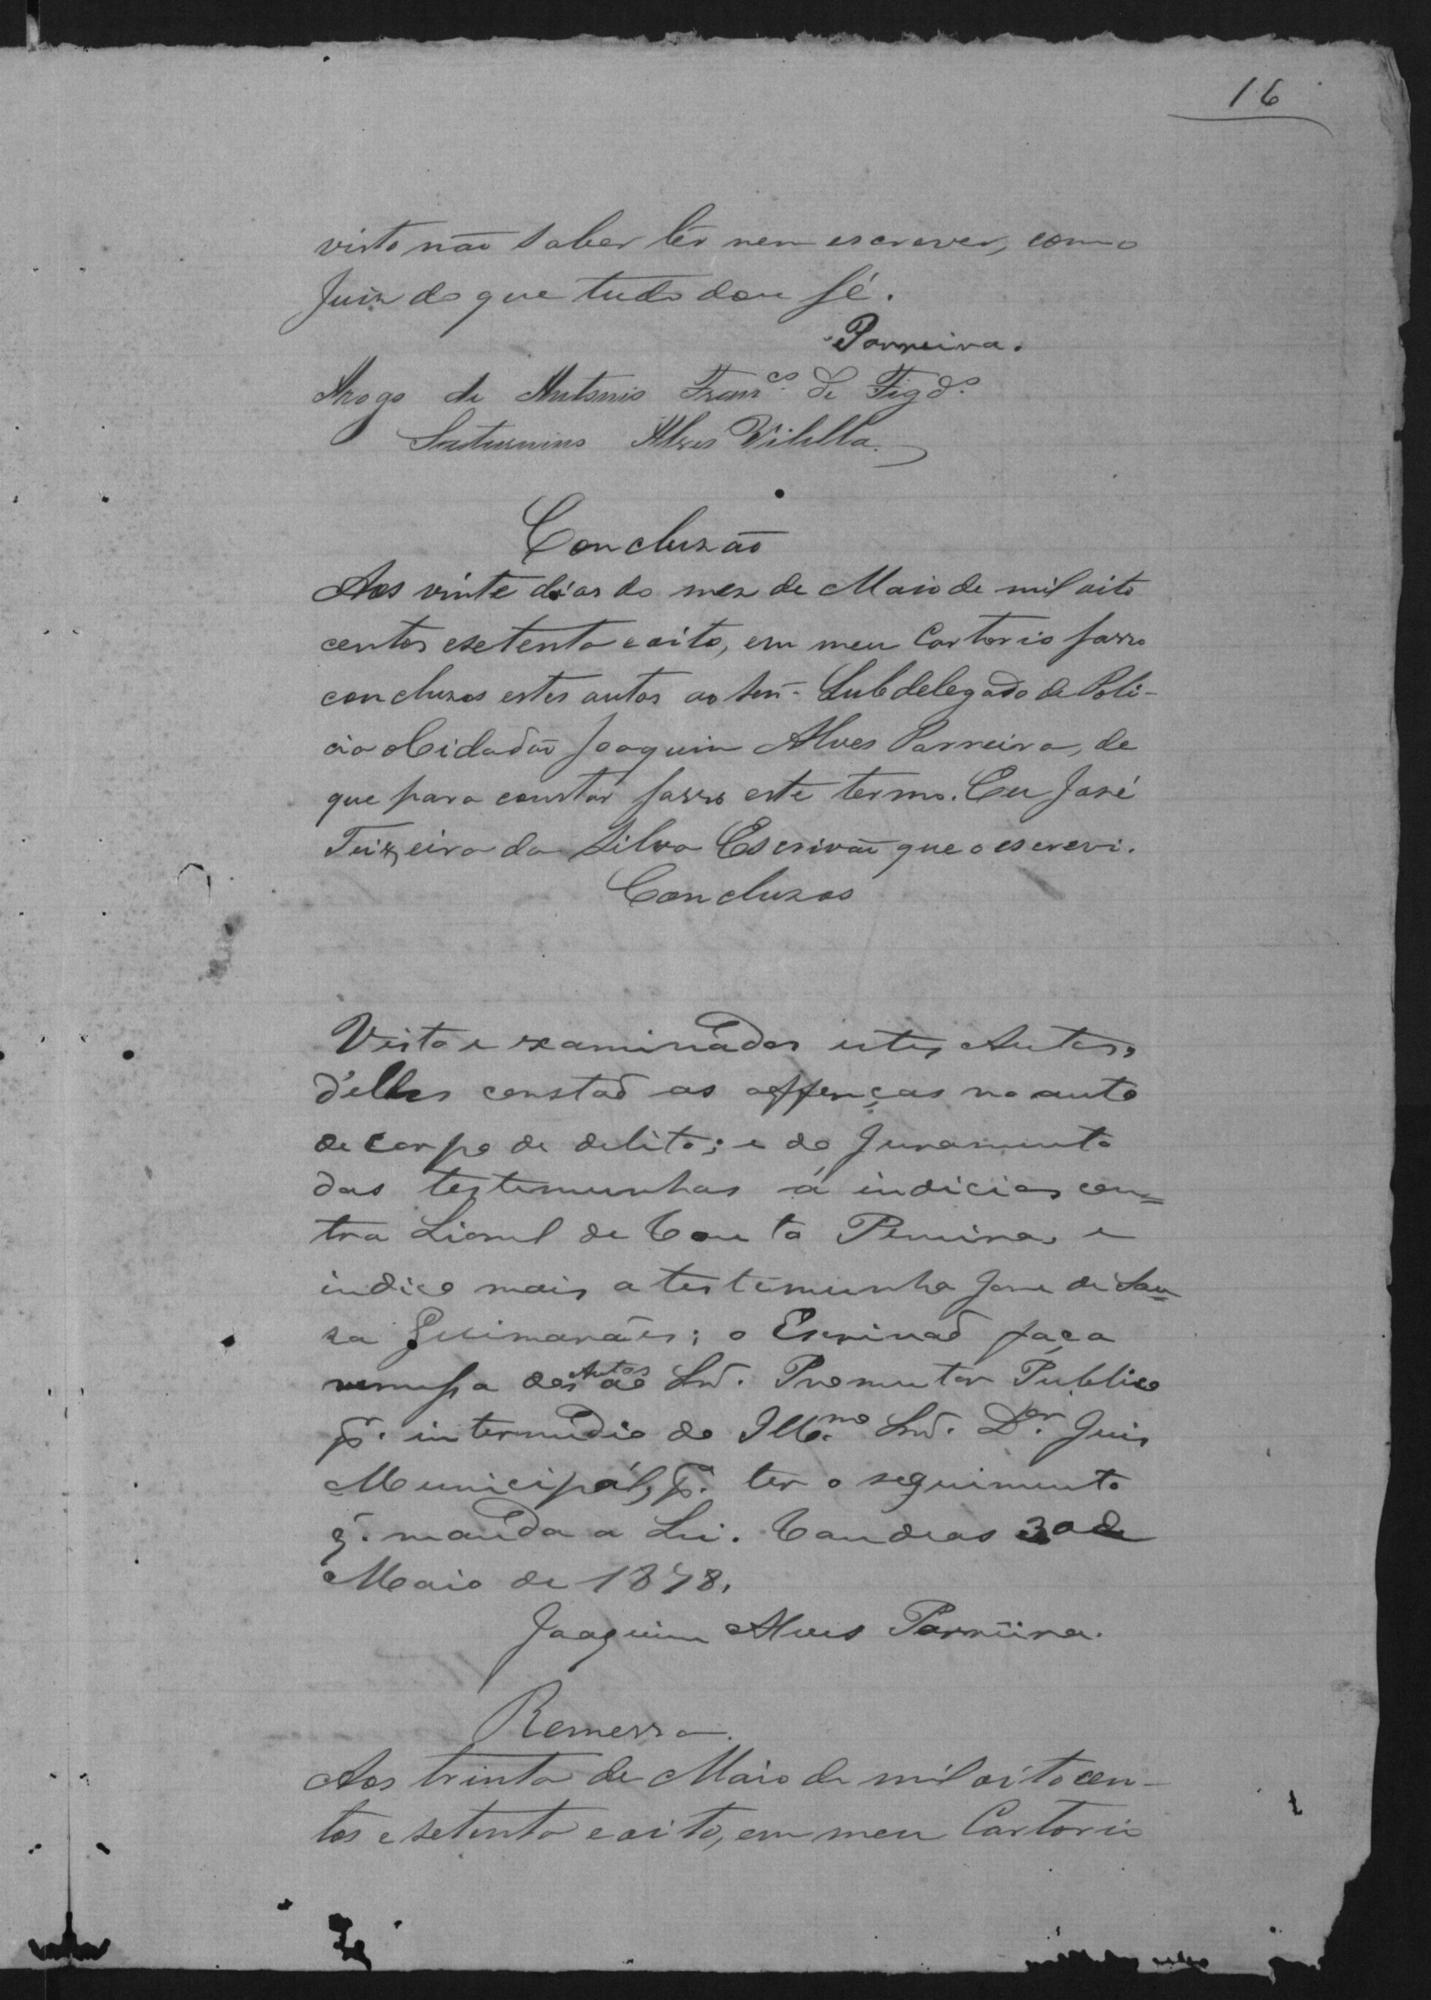 16
visto não saber lêr nem escrever, com o
Juiz do que tudo dou fé.
Parreira.
Arogo de Antonio Fran.co de Figd.o
Saturnino Alves Vilella.
Concluzão
Aos vinte dias do mez de Maio de mil oito
centos esetenta eoito, em meu Cartorio fasso
concluzos estes autos ao Senr. Subdelegado de Poli-
cia oCidadão Joaquim Alves Parreira, de
que para constar fasso este termo. Eu José
Teixeira da Silva Escrivão que o escrevi.
Concluzos
Visto e examinados estes Autos,
d'elles constaõ as offenças no auto
de corpo de delito; e do Juramento
das testemunhas á indicios con=
tra Lionel de Couto Pereira e
indico mais a testemunha Jose de Sou=
sa Guimarães; o Escrivaõ faça
remessa des Autos ao Snr. Promutor Publico
p.r intermedio do Illmo. Snr. Dor. Juis
Municipál, p.a ter o seguimento
q. manda a Lei. Candeas 30 de
Maio de 1878.
Joaquim Alves Parreira.
Remessa.
Aos trinta de Maio de mil oito cen-
tos e setenta eoito, em meu Cartorio